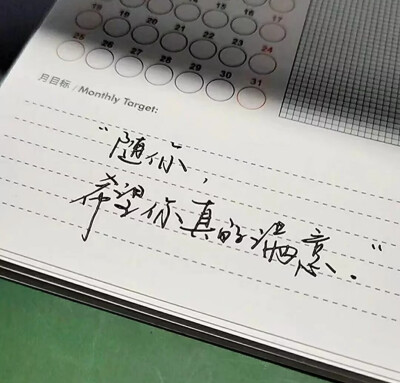 16 17
22 23 24
25 26 27 28 29 30 31
月目标 / Monthly Target:
“随你，
希望你真的满意。”